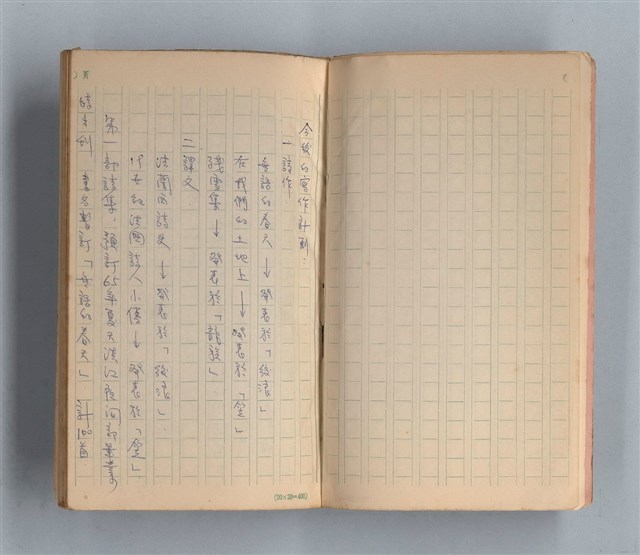 今後的寫作計劃：
一 詩作
母語的春天 → 發表於「後浪」
在我們的土地上 → 發表於「笠」
殘雪集 → 發表於「龍族」
二 譯文
法蘭西詩史 → 發表於「後浪」．
法國詩人小傳 → 發表於「笠」
第一部詩集，預訂65年夏天淡江夜間部畢業
時出版 書名暫訂「母語的春天」 計100首
頁
(20×20=400)